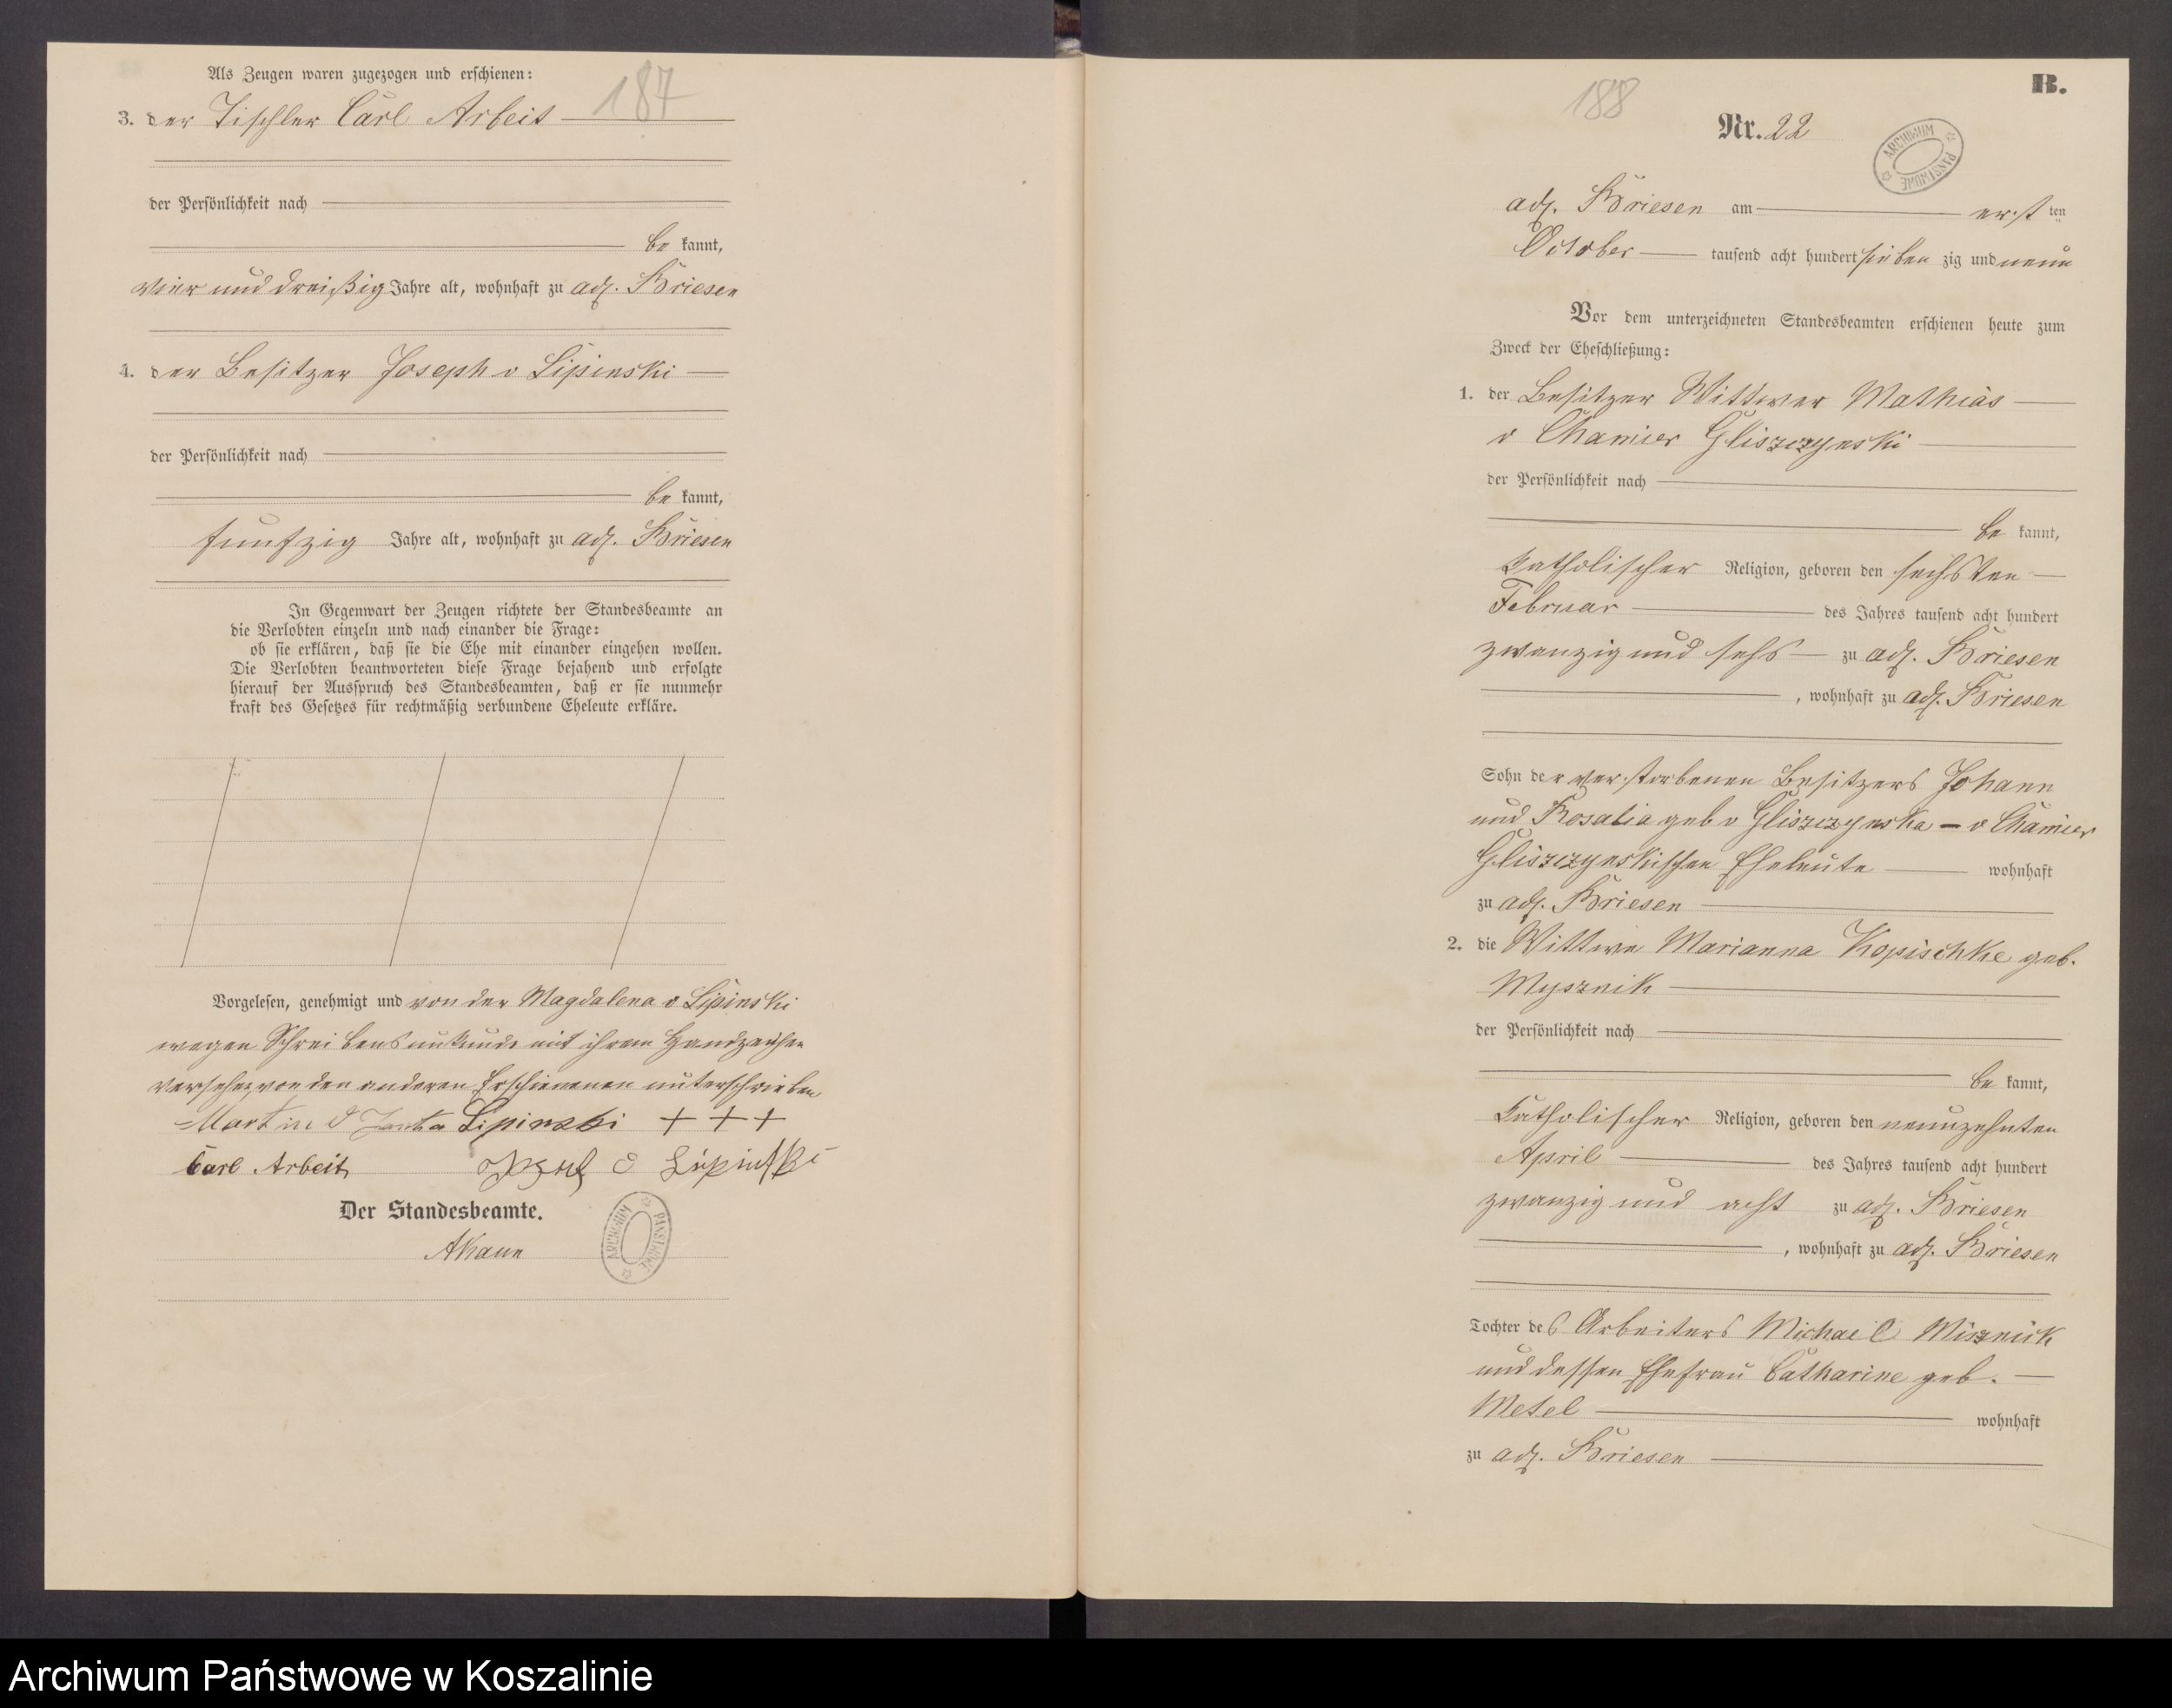 Als Zeugen waren zugezogen und erschienen:
187
3. der Tischler Carl Arbeit
der Persönlichkeit nach
be kannt,
vier und dreißig Jahre alt, wohnhaft zu adl. Briesen
4. der Besitzer Joseph v Lipinski
der Persönlichkeit nach
be kannt,
funfzig Jahre alt, wohnhaft zu adl. Briesen
In Gegenwart der Zeugen richtete der Standesbeamte an
die Verlobten einzeln und nach einander die Frage:
ob sie erklären, daß sie die Ehe mit einander eingehen wollen.
Die Verlobten beantworteten diese Frage bejahend und erfolgte
hierauf der Ausspruch des Standesbeamten, daß er sie nunmehr
kraft des Gesetzes für rechtmäßig verbundene Eheleute erkläre.
Vorgelesen, genehmigt und von der Magdalena v Lipinski
wegen Schreibensunkunde mit ihrem Handzeichen
versehen, von den anderen Erschienenen unterschrieben
Martin v Lipinski + + +
Carl Arbeit v Lipinski
Der Standesbeamte.
ARCHIWUM PAŃSTWOWE
188
B.
Nr. 22
ARCHIWUM PAŃSTWOWE
adl. Briesen am ersten
October tausend acht hundert sieben zig und neun
Vor dem unterzeichneten Standesbeamten erschienen heute zum
Zweck der Eheschließung:
1. der Besitzer Wittwer Mathias
v Chamier Gliszczynski
der Persönlichkeit nach
be kannt,
katholischer Religion, geboren den sechsten
Februar des Jahres tausend acht hundert
zwanzig und sechs zu adl. Briesen
, wohnhaft zu adl. Briesen
Sohn der verstorbenen Besitzers Johann
und Rosalia geb v Gliszczynska - v Chamier
Gliszczynskischen Eheleute wohnhaft
zu adl. Briesen
2. die Wittwe Marianna Kopischke geb.
Mysznik
der Persönlichkeit nach
be kannt,
katholischer Religion, geboren den neunzehnten
April des Jahres tausend acht hundert
zwanzig und acht zu adl. Briesen
, wohnhaft zu adl. Briesen
Tochter des Arbeiters Michael Misznik
und dessen Ehefrau Catharine geb.
Metel wohnhaft
zu adl. Briesen
Archiwum Państwowe w Koszalinie